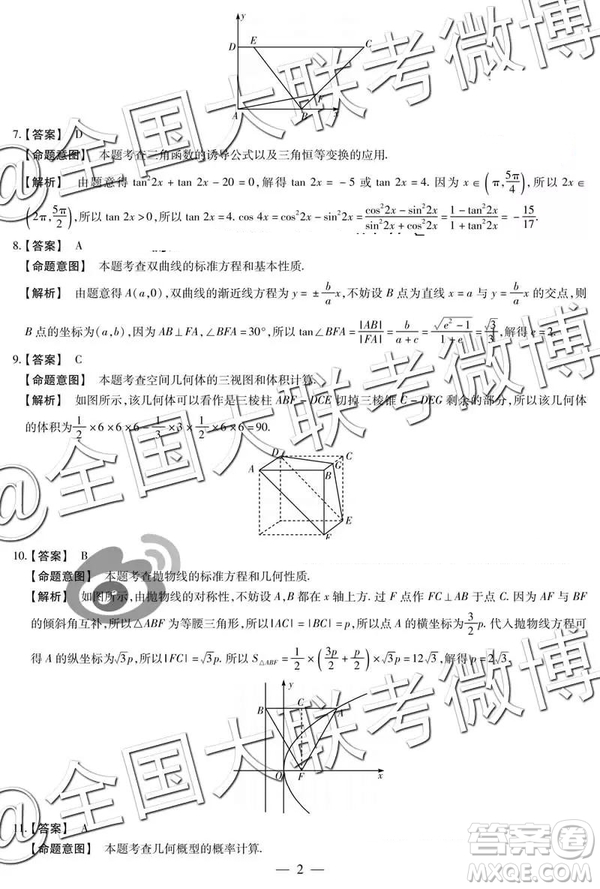 y
D E C
F
A B x
7.【答案】 D
【命题意图】 本题考查三角函数的诱导公式以及三角恒等变换的应用.
【解析】 由题意得 tan²2x + tan 2x - 20 = 0, 解得 tan 2x = -5 或 tan 2x = 4. 因为 x ∈ (π, 5π/4), 所以 2x ∈
(2π, 5π/2), 所以 tan 2x > 0, 所以 tan 2x = 4. cos 4x = cos²2x - sin²2x = (cos²2x - sin²2x)/(sin²2x + cos²2x) = (1 - tan²2x)/(1 + tan²2x) = -15/17.
8.【答案】 A
【命题意图】 本题考查双曲线的标准方程和基本性质.
【解析】 由题意得 A(a,0), 双曲线的渐近线方程为 y = ± b/a x, 不妨设 B 点为直线 x = a 与 y = b/a x 的交点, 则
B 点的坐标为(a,b), 因为 AB⊥FA, ∠BFA = 30°, 所以 tan∠BFA = |AB|/|FA| = b/(a + c) = √(e² - 1)/(1 + e) = √3/3, 解得 e = 2.
9.【答案】 C
【命题意图】 本题考查空间几何体的三视图和体积计算.
【解析】 如图所示, 该几何体可以看作是三棱柱 ABF - DCE 切掉三棱锥 C - DEG 剩余的部分, 所以该几何体
的体积为 1/2 × 6 × 6 × 6 - 1/3 × 1/2 × 3 × 6 × 6 = 90.
D C
G
A B
E
F
10.【答案】 B
【命题意图】 本题考查抛物线的标准方程和几何性质.
【解析】 如图所示, 由抛物线的对称性, 不妨设 A, B 都在 x 轴上方. 过 F 点作 FC⊥AB 于点 C. 因为 AF 与 BF
的倾斜角互补, 所以△ABF 为等腰三角形, 所以|AC| = |BC| = p, 所以点 A 的横坐标为 3/2 p. 代入抛物线方程可
得 A 的纵坐标为 √3p, 所以|FC| = √3p. 所以 S△ABF = 1/2 × (3p/2 + p/2) × √3p = 12√3, 解得 p = 2√3.
y
B C A
O F x
11.【答案】 A
【命题意图】 本题考查几何概型的概率计算.
— 2 —
@全国大联考微博
@全国大联考微博
@全国大联考微博
答案圈
MXQE.COM